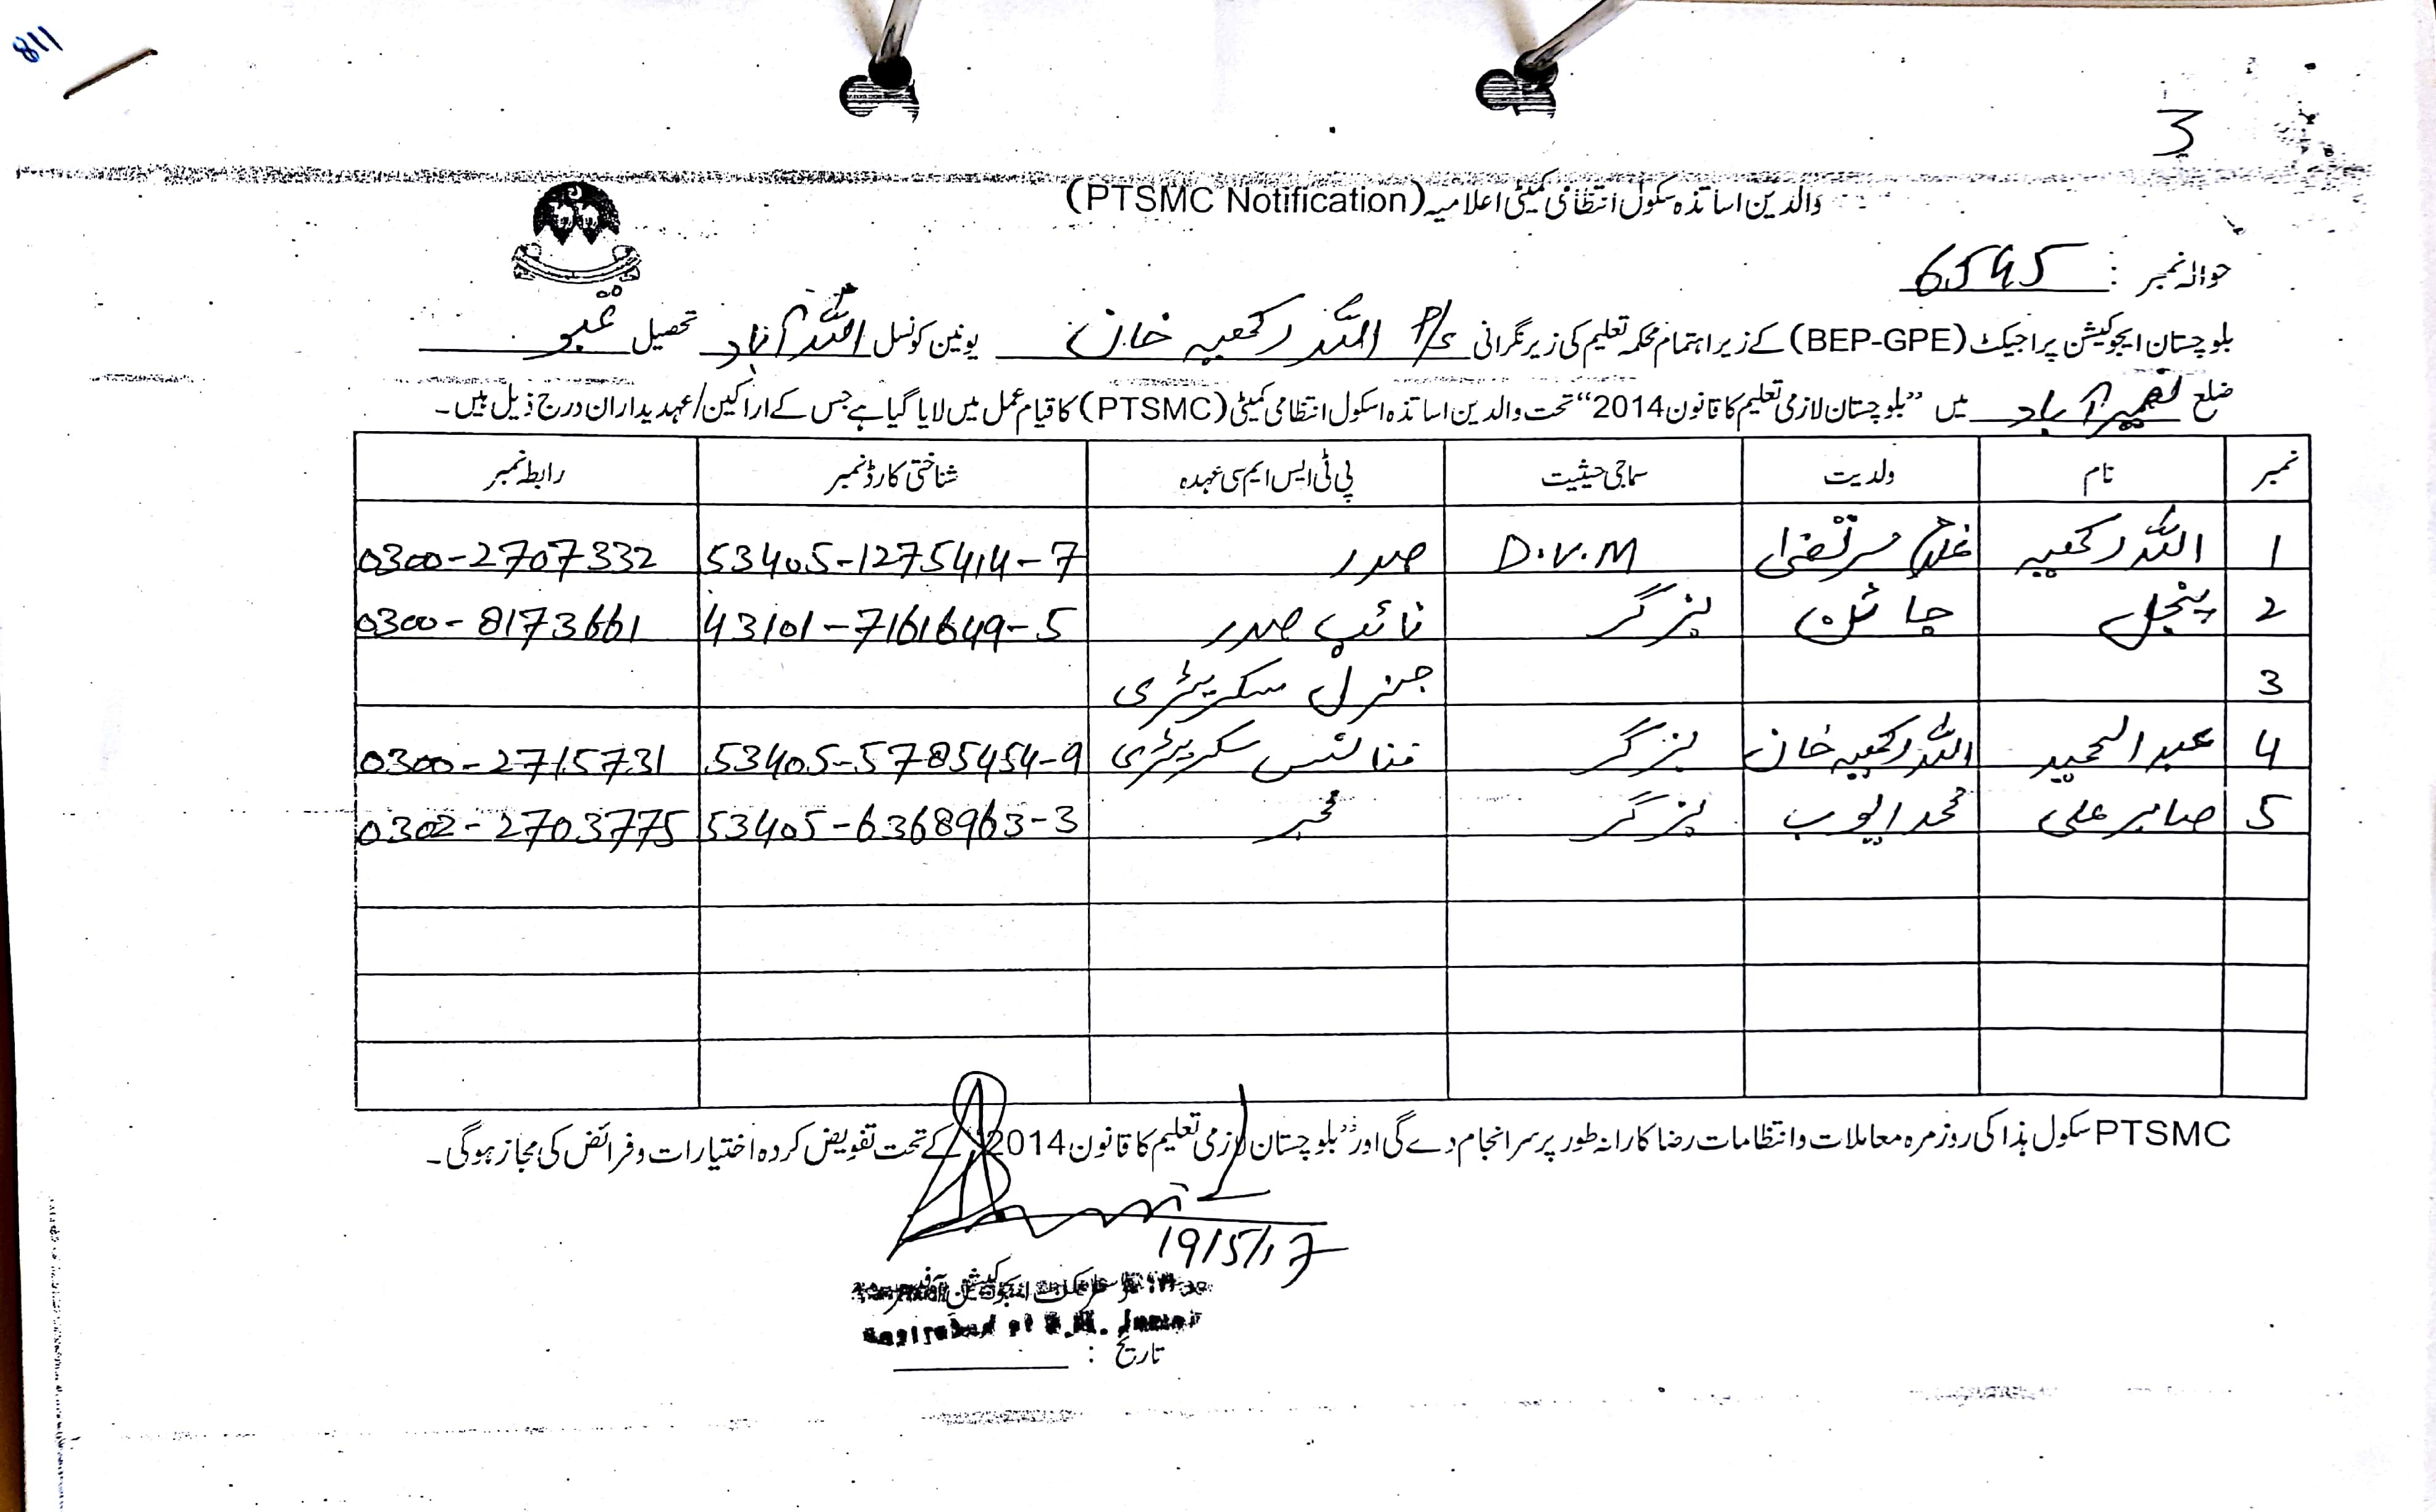 118
3
والدین اساتذہ سکول انتظامی کمیٹی اعلامیہ (PTSMC Notification)
حوالہ نمبر : 6545
بلوچستان ایجوکیشن پراجیکٹ (BEP-GPE) کے زیر اہتمام محکمہ تعلیم کی زیر نگرانی P/S اللہ رکھیہ خان یونین کونسل اللہ آباد تحصیل تمبو
ضلع نصیر آباد میں ”بلوچستان لازمی تعلیم کا قانون 2014“ تحت والدین اساتذہ اسکول انتظامی کمیٹی (PTSMC) کا قیام عمل میں لایا گیا ہے جس کے اراکین/عہدیداران درج ذیل ہیں۔
نمبر نام ولدیت سماجی حیثیت پی ٹی ایس ایم سی عہدہ شناختی کارڈ نمبر رابطہ نمبر
1 اللہ رکھیہ غلام مرتضیٰ D.V.M صدر 53405-1275414-7 0300-2707332
2 پنجل چائن بزگر نائب صدر 43101-7161649-5 0300-8173661
3 جنرل سکریٹری
4 عبدالحمید اللہ رکھیہ خان بزگر فنانس سکریٹری 53405-5785454-9 0300-2715731
5 صابر علی محمد ایوب بزگر ممبر 53405-6368963-3 0302-2703775
PTSMC سکول ہذا کی روزمرہ معاملات و انتظامات رضا کارانہ طور پر سر انجام دے گی اور ”بلوچستان لازمی تعلیم کا قانون 2014“ کے تحت تفویض کردہ اختیارات و فرائض کی مجاز ہوگی۔
19/5/17
ایجوکیشن آفیسر
تاریخ :